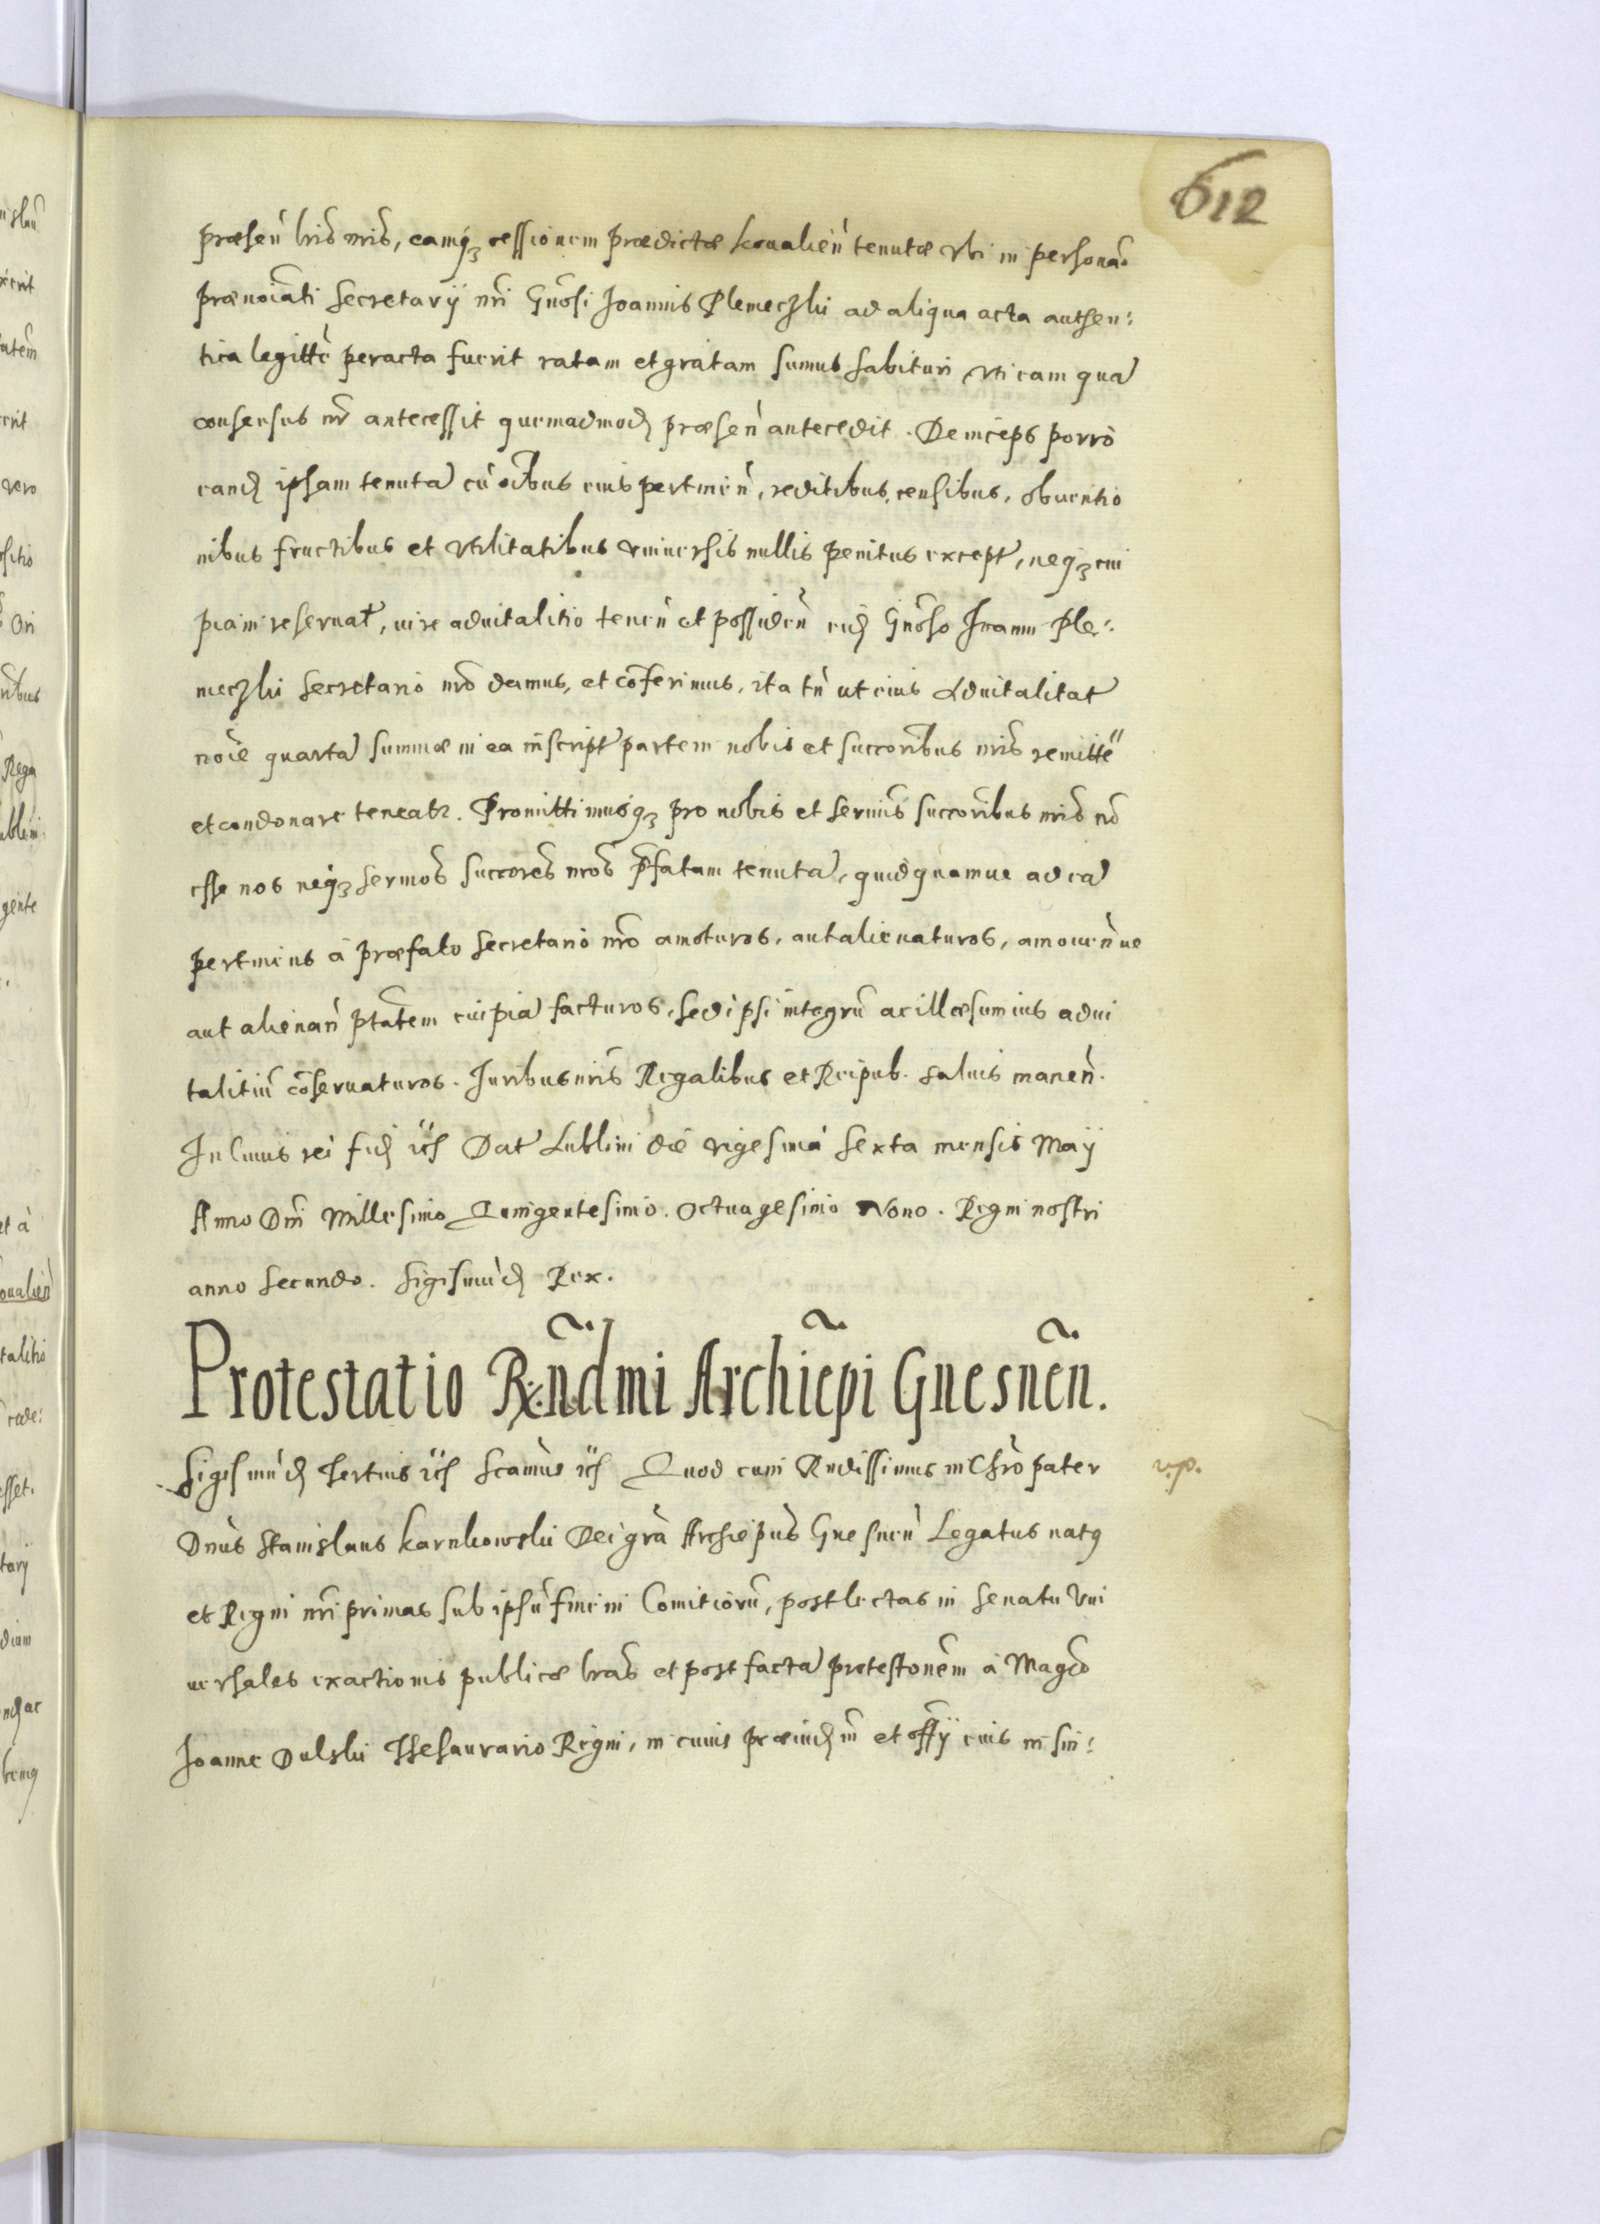 612
præsen̄ lr̄is nr̄is, eamq́ꝫ cessionem prædictæ Kovalien̄ tenutæ vbi in personā
prænoīati Secretarÿ nr̄i Gn̄osi Joannis Plemeczki ad aliqua acta authen:
tica legittē peracta fuerit ratam et gratam sumus habituri vti eam quā
consensus nr̄ antecessit quemadmodꝫ præsen̄ antecedit. Deinceps porrò
eandꝫ ipsam tenutā cū oībus eius pertinen̄, reditibus, censibus, obuentio
nibus fructibus et vtilitatibus vniuersis nullis penitus except̄, neqꝫ cui
piam reseruat̄, iure aduitalitio tenen̄ et possiden̄ eidꝫ Gn̄oso Joanni Ple:
meczki Secretario nr̄o damus, et cōferimus, ita tn̄ ut eius Aduitalitat̄
noīe quartā summæ in ea inscript̄ partem nobis et succorībus nr̄is remittē
et condonare teneatꝛ. Promittimusq́ꝫ pro nobis et Serm̄is succorībus nr̄is nō
esse nos neqꝫ Serm̄os succorēs nr̄os p̄fatam tenutā, quidquamue ad eā
pertinens à præfato Secretario nr̄o amoturos, aut alienaturos, amouen̄ue
aut alienan̄ ptātem cuipiā facturos, sed ipsi integrū ac illæsum ius adui
talitiū cōseruaturos. Juribus nr̄is Regalibus et Reipub. saluis manen̄.
In cuius rei fidꝫ etc̄ Dat̄ Lublini diē vigesima sexta mensis Maÿ
Anno Dn̄i Millesimo Quingentesimo Octuagesimo Nono. Regni nostri
anno secundo. Sigismūdꝫ Rex.
Protestatio Rn̄dmi Archiēpi Gnesnēn.
Sigismūdꝫ Tertius etc̄ Sc̄amus etc̄ Quod cum Rndissimus in Chr̄o pater
Dn̄us Stanislaus Karnkowski Dei gr̄a Archiepūs Gnesnen̄ Legatus natꝯ
et Regni nr̄i primas sub ipsū finem Comitiorū, post lectas in Senatu Vni
uersales exactionis publicæ lr̄as et post factā protestonēm à Magco
Joanne Dulski Thesaurario Regni, in cuius præiudꝫm et offÿ eius in sin:
v.p.